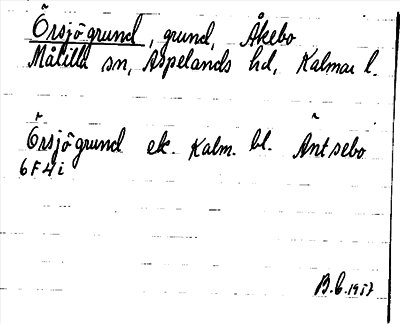 Örsjögrund, grund, Åkebo
Målilla sn, Aspelands hd, Kalmar l.
Örsjögrund ek. Kalm. bl. Äntsebo
6F4i
B.C. 1957